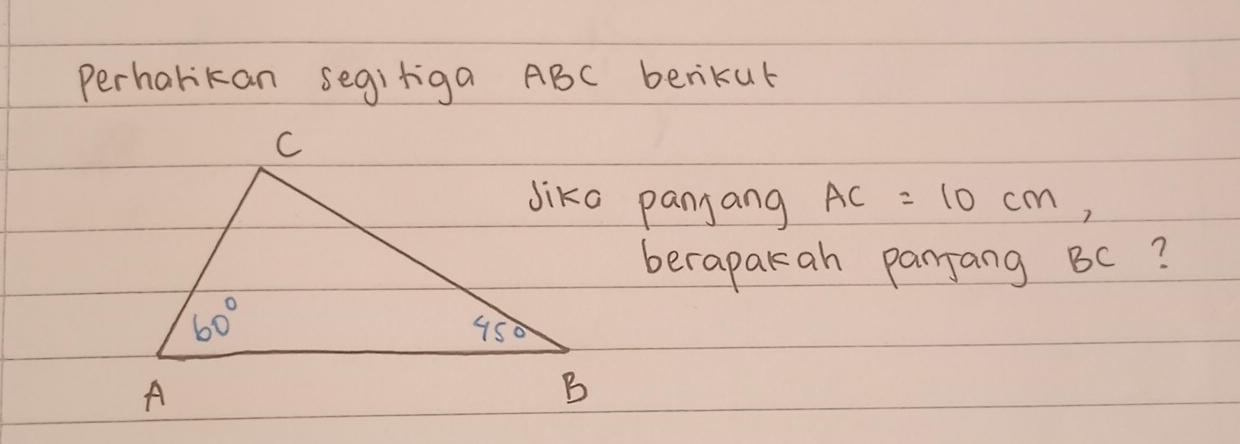 Perhatikan segitiga ABC berikut
C
Jika panjang AC = 10 cm,
berapakah panjang BC ?
60°
45°
A
B